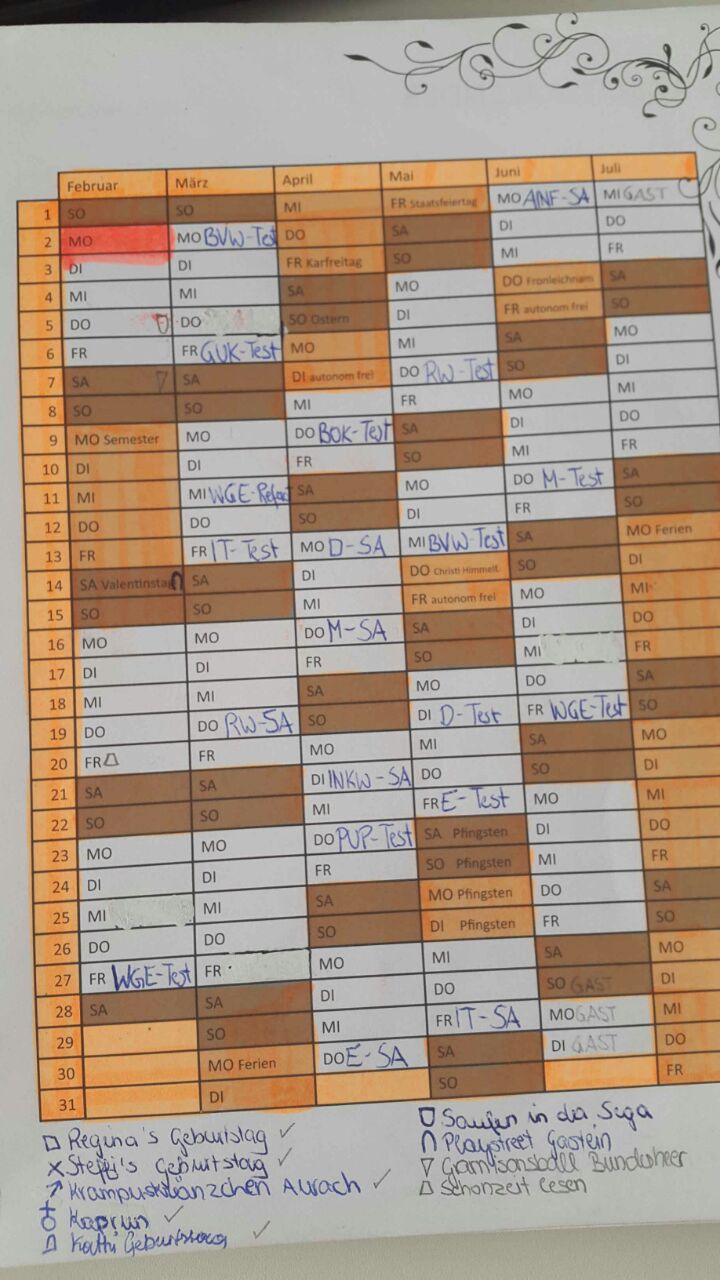 Februar März April Mai Juni Juli
1 SO SO MI FR Staatsfeiertag MO AINF-SA MI GAST
2 MO MO BVW-Test DO SA DI DO
3 DI DI FR Karfreitag SO MI FR
4 MI MI SA MO DO Fronleichnam SA
5 DO DO SO Ostern DI FR autonom frei SO
6 FR FR GUK-Test MO MI SA MO
7 SA SA DI autonom frei DO RW-Test SO DI
8 SO SO MI FR MO MI
9 MO Semester MO DO BOK-Test SA DI DO
10 DI DI FR SO MI FR
11 MI MI WGE-Referat SA MO DO M-Test SA
12 DO DO SO DI FR SO
13 FR FR IT-Test MO D-SA MI BVW-Test SA MO Ferien
14 SA Valentinstag SA DI DO Christi Himmelf. SO DI
15 SO SO MI FR autonom frei MO MI
16 MO MO DO M-SA SA DI DO
17 DI DI FR SO MI FR
18 MI MI SA MO DO SA
19 DO DO RW-SA SO DI D-Test FR WGE-Test SO
20 FR FR MO MI SA MO
21 SA SA DI INKW-SA DO SO DI
22 SO SO MI FR E-Test MO MI
23 MO MO DO PUP-Test SA Pfingsten DI DO
24 DI DI FR SO Pfingsten MI FR
25 MI MI SA MO Pfingsten DO SA
26 DO DO SO DI Pfingsten FR SO
27 FR WGE-Test FR MO MI SA MO
28 SA SA DI DO SO GAST DI
29 SO MI FR IT-SA MO GAST MI
30 MO Ferien DO E-SA SA DI GAST DO
31 DI SO FR
Regina's Geburtstag ✓
Steffi's Geburtstag ✓
Krampuskränzchen Aurach ✓
Kaprun ✓
Kathi Geburtstag ✓
Saufen in da Suga
Playstreet Gastein
Garnisonsball Bundesheer
Schonzeit lesen